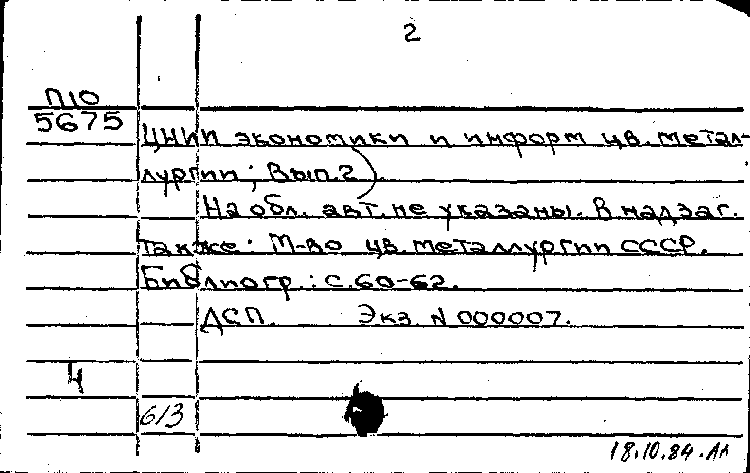 2
П10
5675
ЦНИИ экономики и информ цв. метал-
лургии; Вып. 2).
На обл. авт. не указаны. В надзаг.
также: М-во цв. металлургии СССР.
Библиогр.: с. 60-62.
ДСП. Экз. N 000007.
4
б/з
18.10.84.